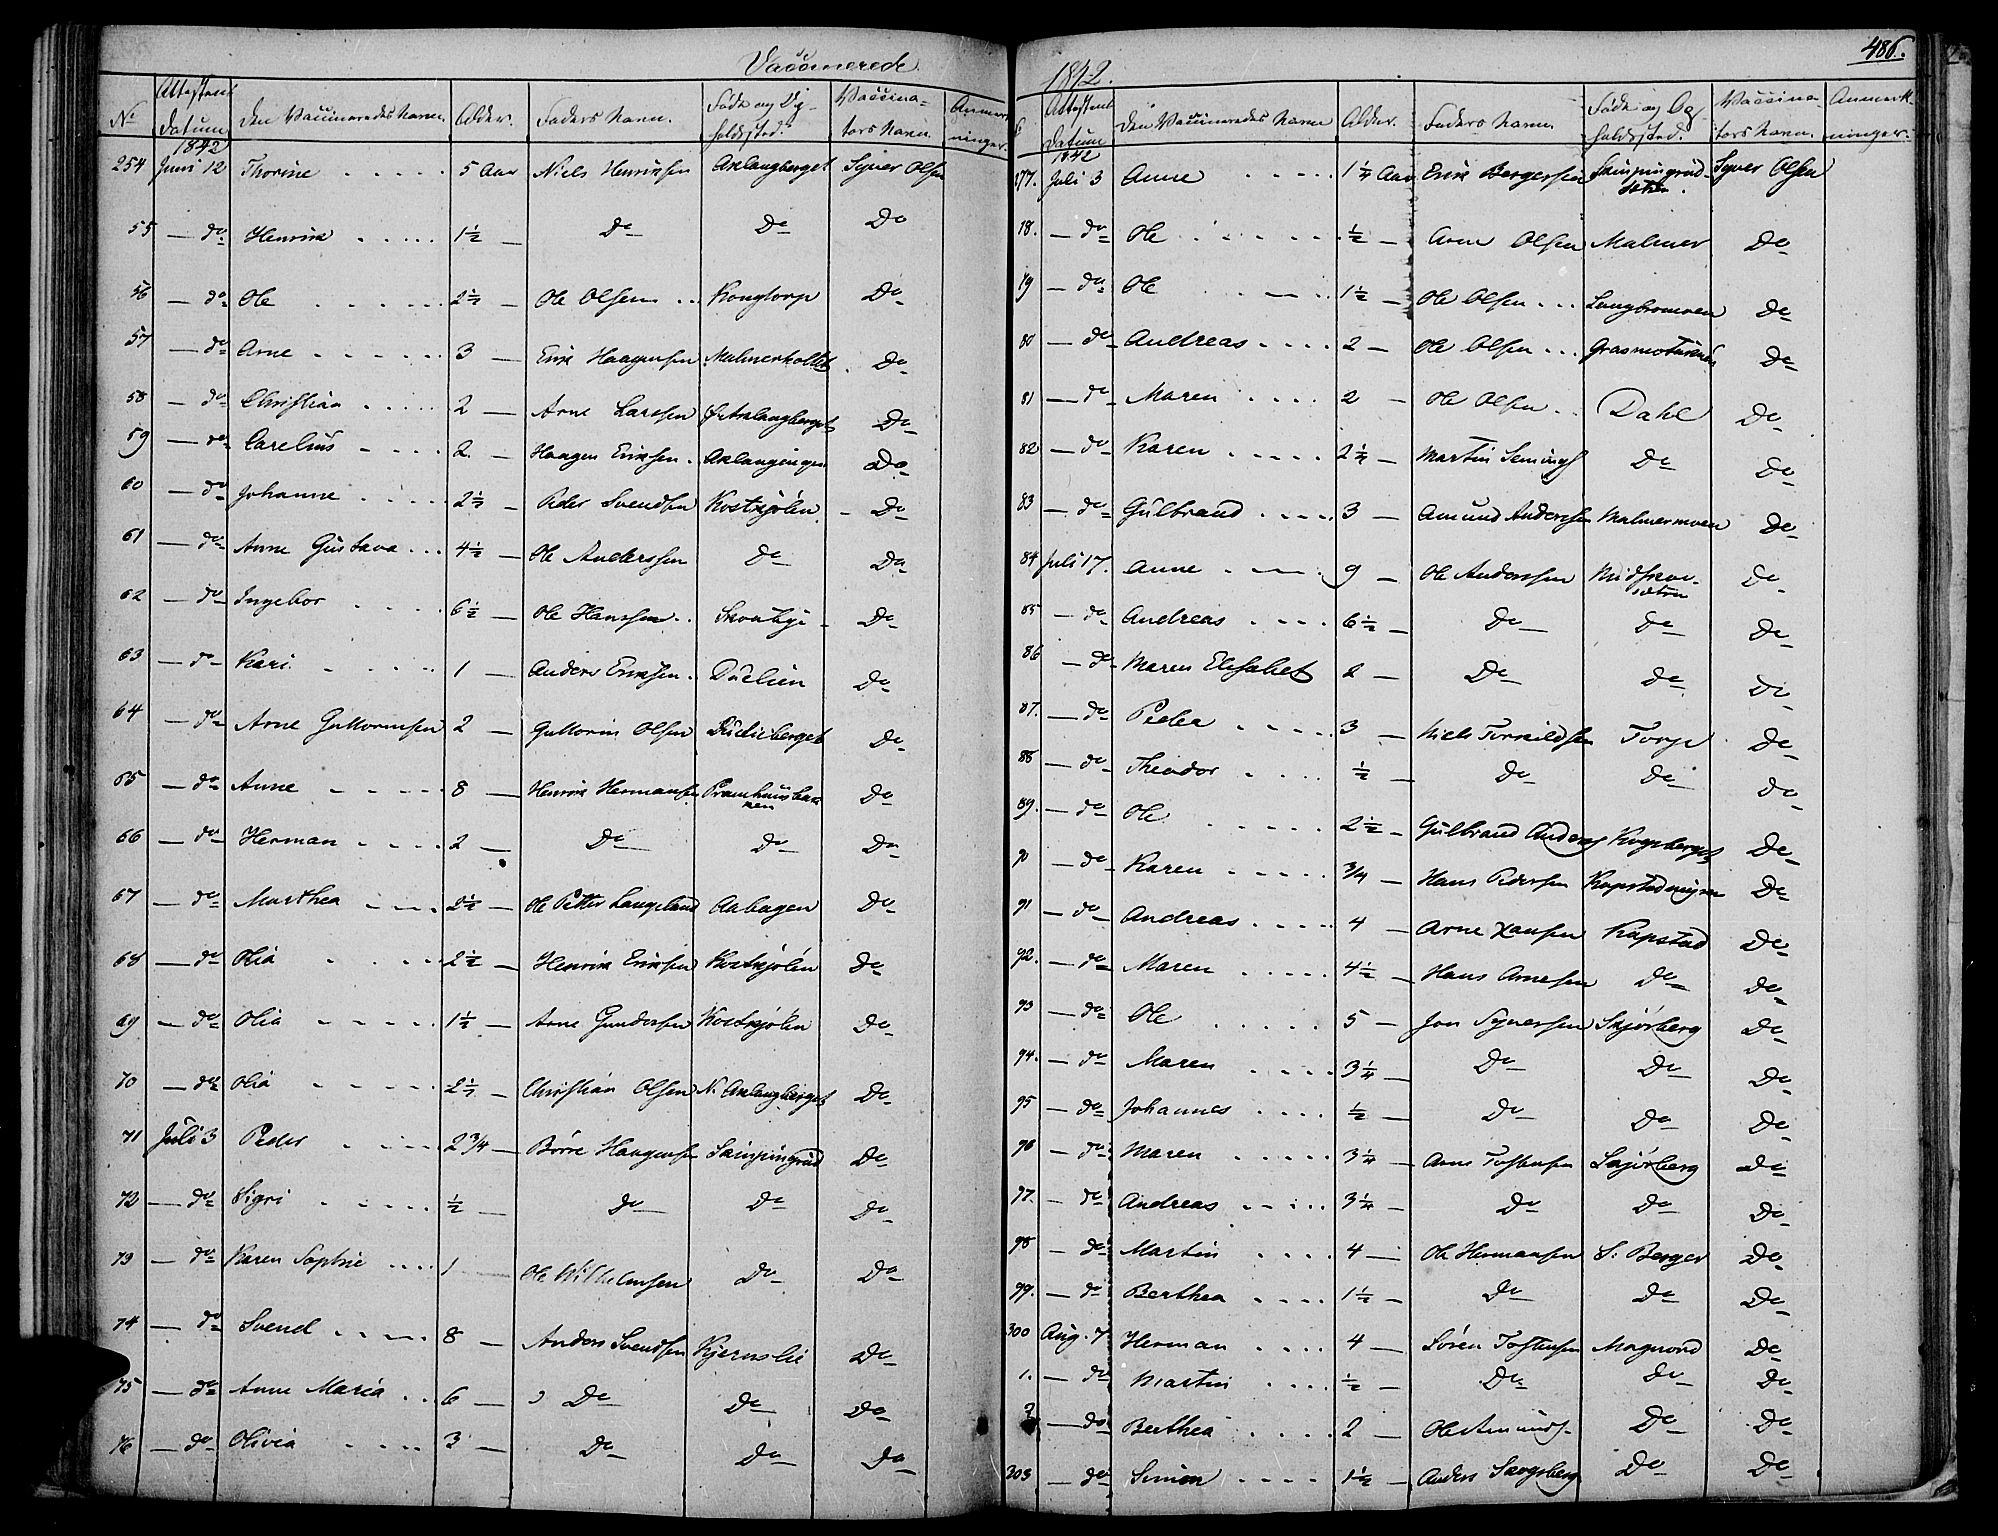 Vaccinerede
No Attestens Datum Den Vaccineredes Navn. Alder. Faders Navn. Føde og Opholdssted. Vaccinators Navn. Anmærkninger.
1842
254 Juni 12 Thorine 5 Aar Niels Henriksen Aklangberget Syver Olsen
55 — do Henrik 1½ — Do Do Do
56 — do Ole 2½ — Ole Olsen Kongtorp Do
57 — do Arne 3 — Erik Haagensen Malmerkollet Do
58 — do Christian 2 — Arne Larssen Do
59 — do Carelius 2 — Haagen Eriksen Do
60 — do Johanne 2½ — Peder Svendsen Kostkjølen Do
61 — do Anne Gustava 4½ — Ole Anderssen Do Do
62 — do Ingebor 6½ — Ole Hanssen Skoubye Do
63 — do Kari 1 — Anders Eriksen Do
64 — do Arne Guttormsen 2 — Guttorm Olsen Do
65 — do Anne 8 — Henrik Hermansen Pramhuusbakken Do
66 — do Herman 2 — Do Do Do
67 — do Marthea 2½ — Ole Petter Langeland Aabogen Do
68 — do Olia 2½ — Henrik Eriksen Kostkjølen Do
69 — do Olia 1½ — Arne Gundersen Kostkjølen Do
70 — do Olia 2½ — Christian Olsen N. Aklangberget Do
71 Juli 3 Peder 2¾ — Børre Haagensen Do
72 — do Sigri ½ — Do Do Do
73 — do Karen Sophie 1 Ole Wilhelmsen Do Do
74 — do Svend 8 — Anders Svendsen Kjernslie Do
75 — do Anne Maria 6 — Do Do Do
76 — do Olivia 3 — Do Do Do
486.
1842.
Attestens Datum Den Vaccineredes Navn Alder. Faders Navn. Føde og Opholdssted. Vaccinators Navn. Anmærkninger.
1842
177. Juli 3 Anne 1¼ Aar Erik Bergersen Syver Olsen
18. — do Ole ½ — Arne Olsen Malmer Do
19 — do Ole 1½ — Ole Olsen Do
80 — do Andreas 2 — Ole Olsen Do
81 — do Maren 2 — Ole Olsen Dahl Do
82 — do Karen 2¼ — Martin Do Do
83 — do Gulbrand 3 — Amund Anderssen Malmermoen Do
84 Juli 17. Anne 9 — Ole Anderssen Do
85 — do Andreas 6½ — Do Do Do
86 — do Maren Elisabet 2 — Do Do Do
87. — do Peder 3 — Niels Torkildsen Torp Do
88 — do Theodor ½ — Do Do Do
89. — do Ole 2½ — Gulbrand Anders Do
90 — do Karen 3/4 — Hans Pedersen Do
91 — do Andreas 4 — Arne Hansen Kapstad Do
92. — do Maren 4½ — Hans Arnesen Do Do
93 — do Ole 5 — Jon Syversen Skjørberg Do
94. — do Maren 3¼ — Do Do Do
95 — do Johannes ½ — Do Do Do
96 — do Maren 3¼ — Arne Tostensen Skjørberg Do
97. — do Andreas 3¼ — Do Do Do
98 — do Martin 4 — Ole Hermansen S. Berger Do
99. — do Berthea 1½ — Do Do Do
300 Aug. 7 Herman 4 — Søren Tostensen Magnord Do
1. — do Martin ½ — Do Do Do
2 — do Berthea 2 — Ole Amunds Do Do
303 — do Simen 1½ — Anders Do Do